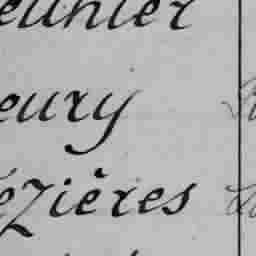 eunier
eury
ézières